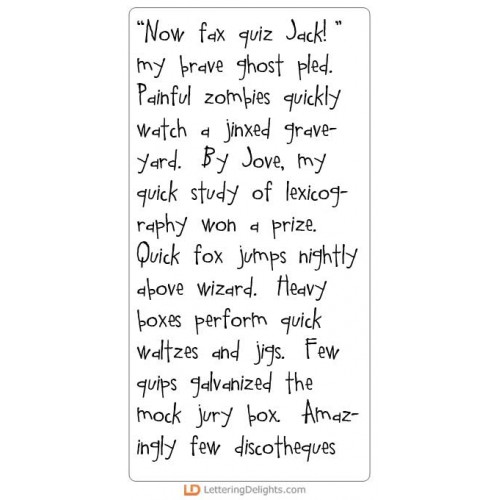 “Now fax quiz Jack! ”
my brave ghost pled.
Painful zombies quickly
watch a jinxed grave-
yard. By Jove, my
quick study of lexicog-
raphy won a prize.
Quick fox jumps nightly
above wizard. Heavy
boxes perform quick
waltzes and jigs. Few
quips galvanized the
mock jury box. Amaz-
ingly few discotheques
LD LetteringDelights.com